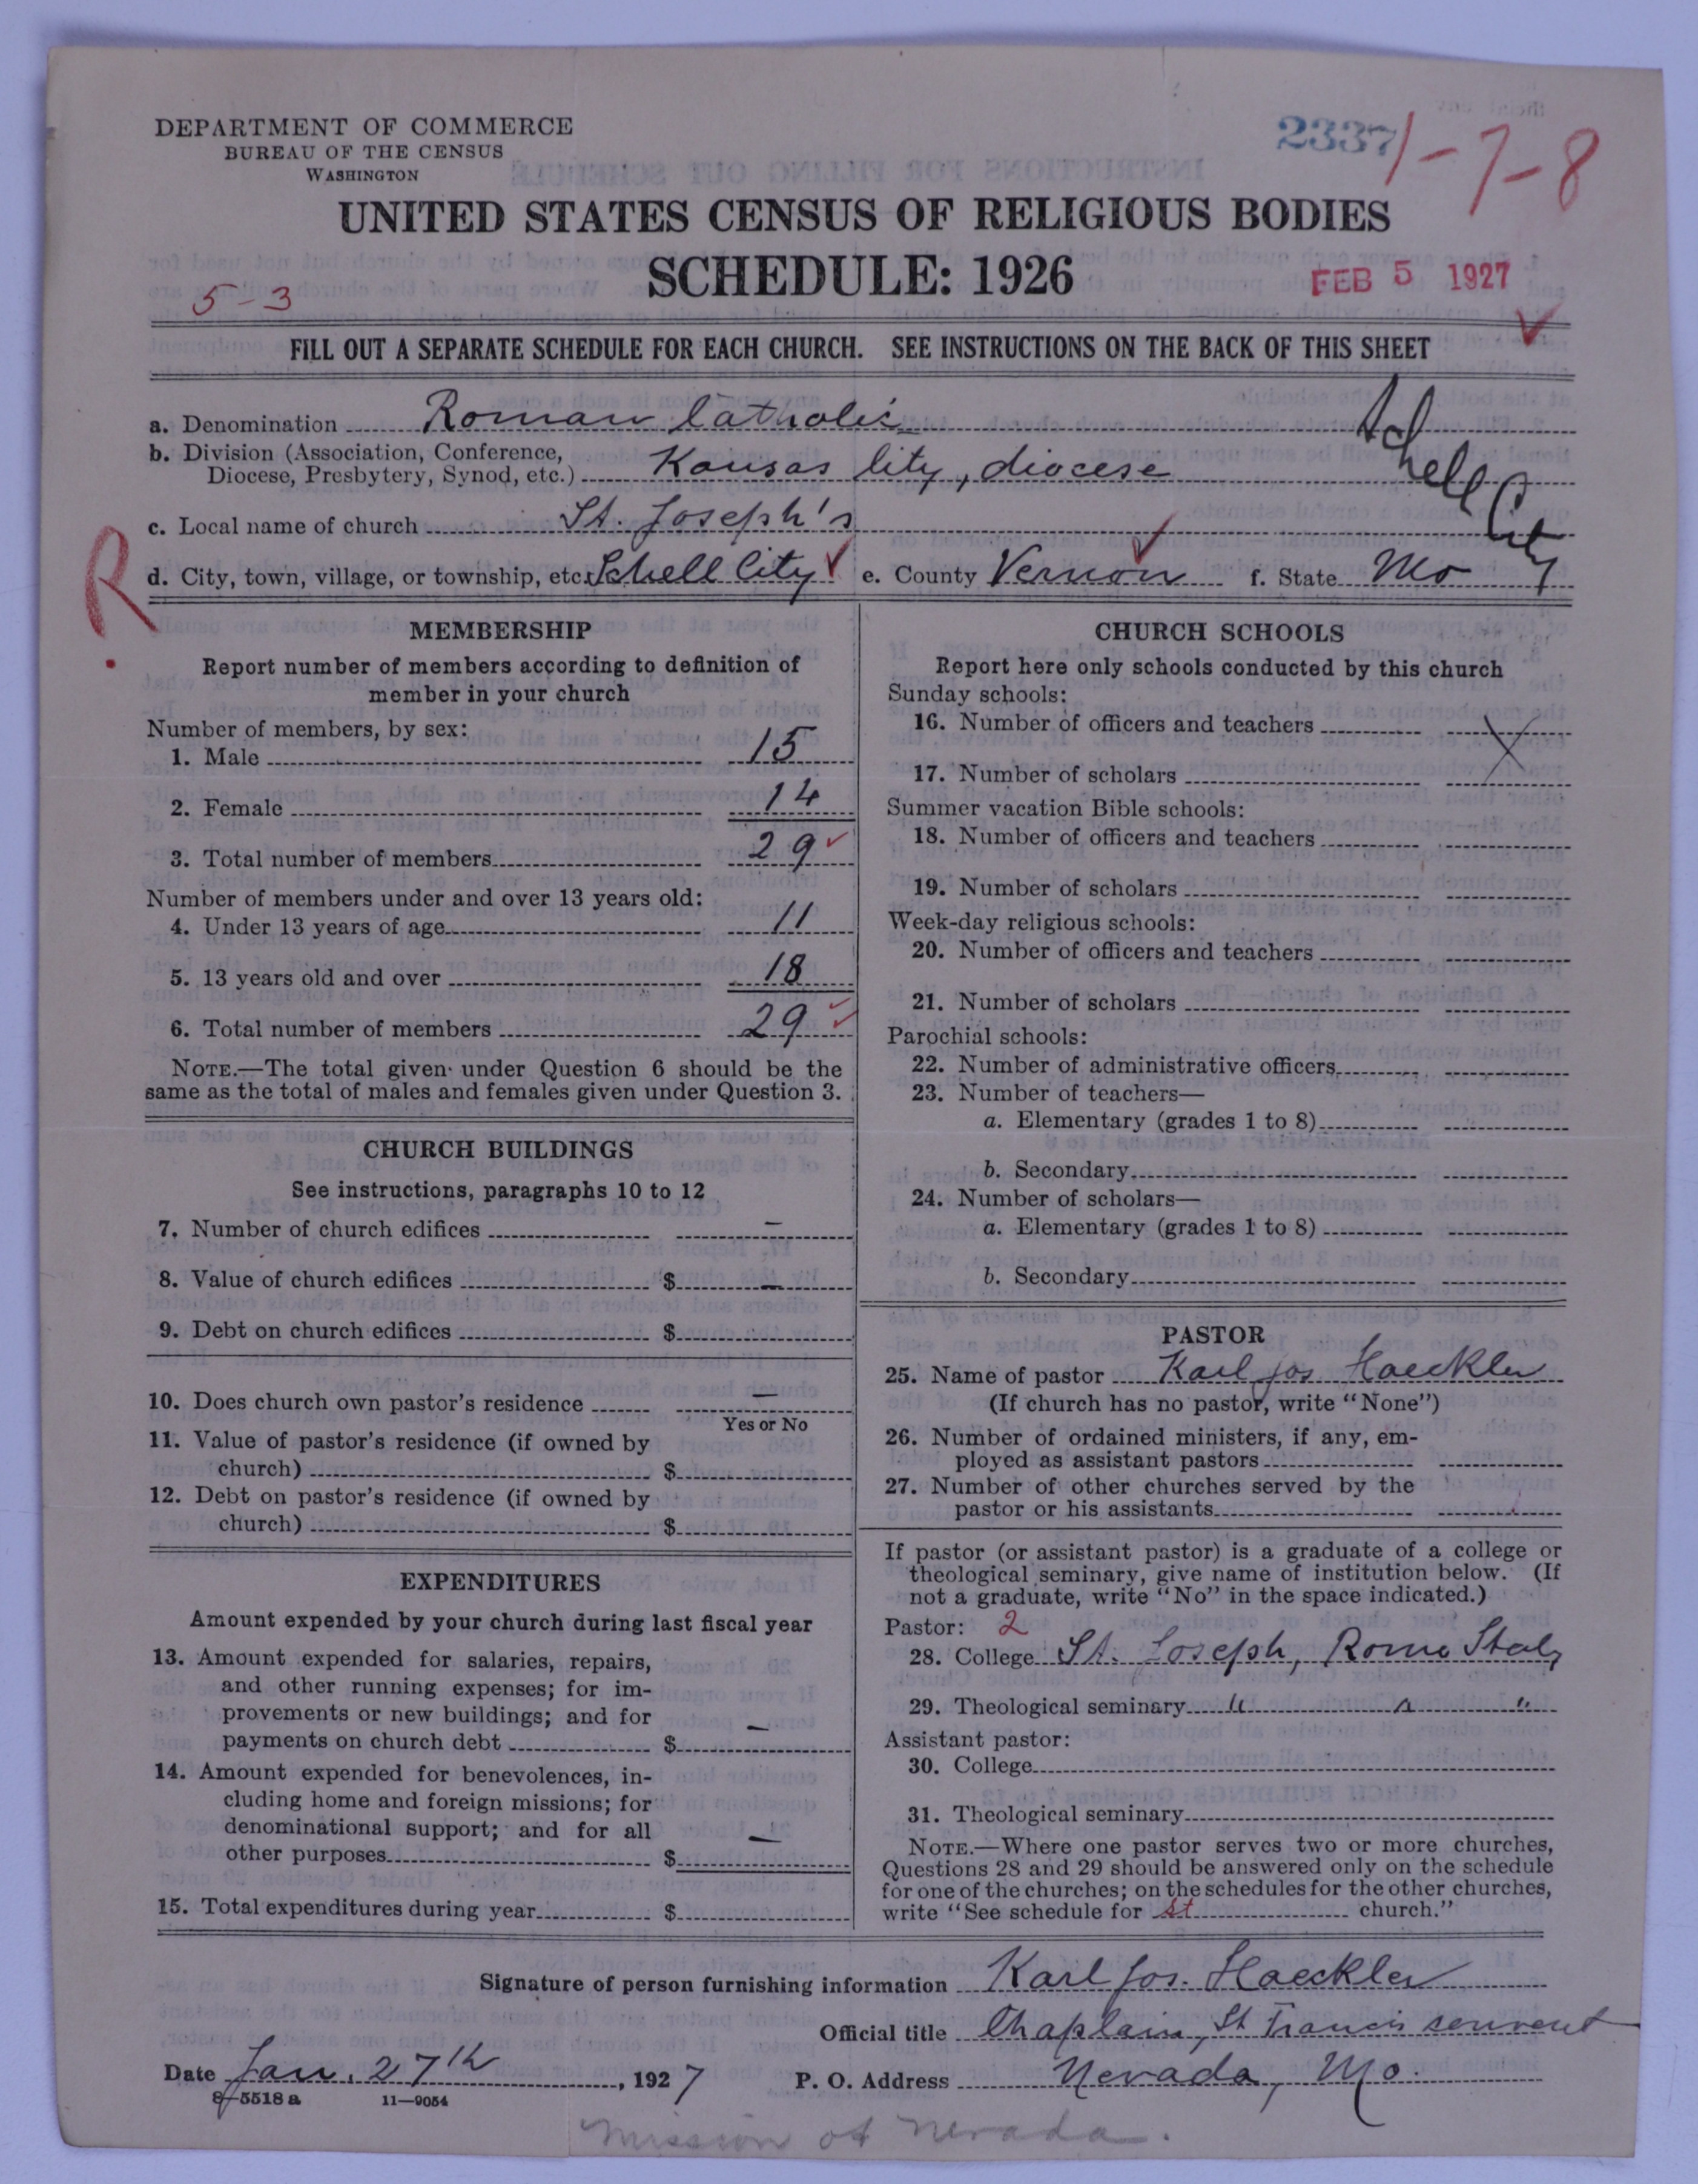 DEPARTMENT OF COMMERCE
BUREAU OF THE CENSUS
WASHINGTON
2337
1-7-8
UNITED STATES CENSUS OF RELIGIOUS BODIES
SCHEDULE: 1926
FEB 5 1927
5-3
FILL OUT A SEPARATE SCHEDULE FOR EACH CHURCH. SEE INSTRUCTIONS ON THE BACK OF THIS SHEET
a. Denomination Roman Catholic
b. Division (Association, Conference,
Diocese, Presbytery, Synod, etc.) Kansas City, diocese
Schell City
c. Local name of church St. Joseph's
R
d. City, town, village, or township, etc. Schell City e. County Vernon f. State Mo
MEMBERSHIP
Report number of members according to definition of
member in your church
Number of members, by sex:
1. Male 15
2. Female 14
3. Total number of members 29
Number of members under and over 13 years old:
4. Under 13 years of age 11
5. 13 years old and over 18
6. Total number of members 29
NOTE.—The total given under Question 6 should be the
same as the total of males and females given under Question 3.
CHURCH BUILDINGS
See instructions, paragraphs 10 to 12
7. Number of church edifices –
8. Value of church edifices $ –
9. Debt on church edifices $
10. Does church own pastor's residence –
Yes or No
11. Value of pastor's residence (if owned by
church) $
12. Debt on pastor's residence (if owned by
church) $
EXPENDITURES
Amount expended by your church during last fiscal year
13. Amount expended for salaries, repairs,
and other running expenses; for im-
provements or new buildings; and for
payments on church debt $ –
14. Amount expended for benevolences, in-
cluding home and foreign missions; for
denominational support; and for all
other purposes $ –
15. Total expenditures during year $
CHURCH SCHOOLS
Report here only schools conducted by this church
Sunday schools:
16. Number of officers and teachers
17. Number of scholars
Summer vacation Bible schools:
18. Number of officers and teachers
19. Number of scholars
Week-day religious schools:
20. Number of officers and teachers
21. Number of scholars
Parochial schools:
22. Number of administrative officers
23. Number of teachers—
a. Elementary (grades 1 to 8)
b. Secondary
24. Number of scholars—
a. Elementary (grades 1 to 8)
b. Secondary
PASTOR
25. Name of pastor Karl Jos. Haeckler
(If church has no pastor, write "None")
26. Number of ordained ministers, if any, em-
ployed as assistant pastors
27. Number of other churches served by the
pastor or his assistants
If pastor (or assistant pastor) is a graduate of a college or
theological seminary, give name of institution below. (If
not a graduate, write "No" in the space indicated.)
Pastor: 2
28. College St. Joseph, Rome Italy
29. Theological seminary " " "
Assistant pastor:
30. College
31. Theological seminary
NOTE.—Where one pastor serves two or more churches,
Questions 28 and 29 should be answered only on the schedule
for one of the churches; on the schedules for the other churches,
write "See schedule for St church."
Signature of person furnishing information Karl Jos. Haeckler
Official title Chaplain, St Francis convent
Date Jan. 27th, 1927 P. O. Address Nevada, Mo.
8-5518 a 11—9054
Mission of Nevada.